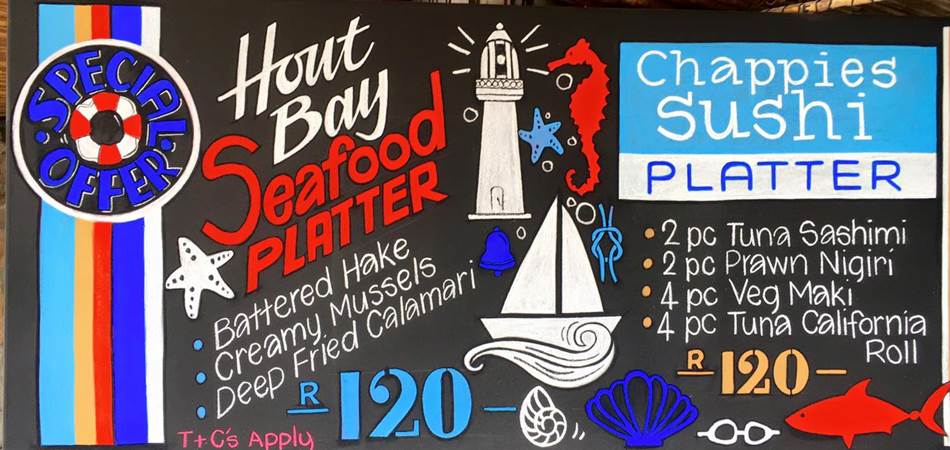 · SPECIAL ·
OFFER
Hout
Bay
Seafood
PLATTER
• Battered Hake
• Creamy Mussels
• Deep Fried Calamari
R120-
T+C's Apply
Chappies
Sushi
PLATTER
• 2 pc Tuna Sashimi
• 2 pc Prawn Nigiri
• 4 pc Veg Maki
• 4 pc Tuna California
Roll
R120-